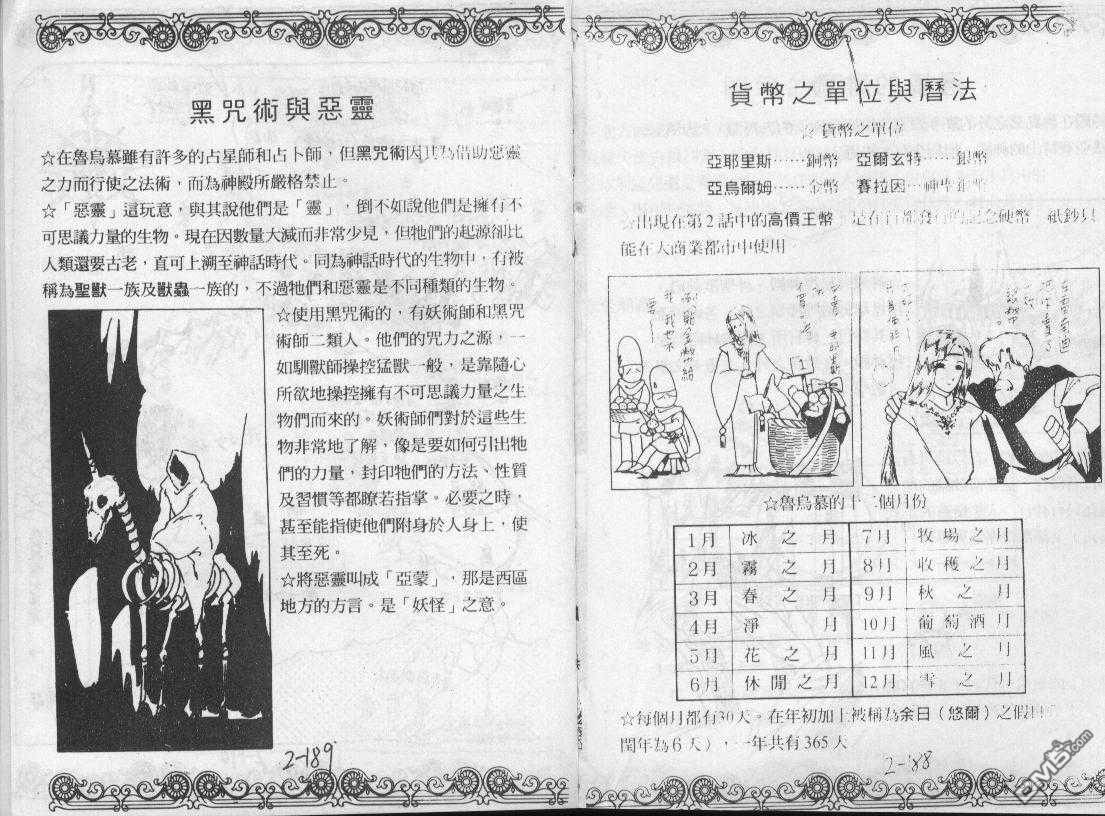 貨幣之單位與曆法
☆貨幣之單位
亞耶里斯……銅幣 亞爾玄特…銀幣
亞烏爾姆……金幣 賽拉因…
☆出現在第2話中的高價王幣，是在
能在大商業都市中使用
☆魯烏慕的十二個月份
1月 冰之月 7月 牧場之月
2月 霧之月 8月 收穫之月
3月 春之月 9月 秋之月
4月 淨月 10月 葡萄酒月
5月 花之月 11月 風之月
6月 休閒之月 12月 雪之月
☆每個月都有30天。在年初加上被稱為余日（悠爾）之假日
閏年為6天），一年共有365天
2-188
黑咒術與惡靈
☆在魯烏慕雖有許多的占星師和占卜師，但黑咒術因其為借助惡靈
之力而行使之法術，而為神殿所嚴格禁止。
☆「惡靈」這玩意，與其說他們是「靈」，倒不如說他們是擁有不
可思議力量的生物。現在因數量大減而非常少見，但牠們的起源卻比
人類還要古老，直可上溯至神話時代。同為神話時代的生物中，有被
稱為聖獸一族及獸蟲一族的，不過牠們和惡靈是不同種類的生物。
☆使用黑咒術的，有妖術師和黑咒
術師二類人。他們的咒力之源，一
如馴獸師操控猛獸一般，是靠隨心
所欲地操控擁有不可思議力量之生
物們而來的。妖術師們對於這些生
物非常地了解，像是要如何引出牠
們的力量，封印牠們的方法、性質
及習慣等都瞭若指掌。必要之時，
甚至能指使他們附身於人身上，使
其至死。
☆將惡靈叫成「亞蒙」，那是西區
地方的方言。是「妖怪」之意。
2-189
DM5.com